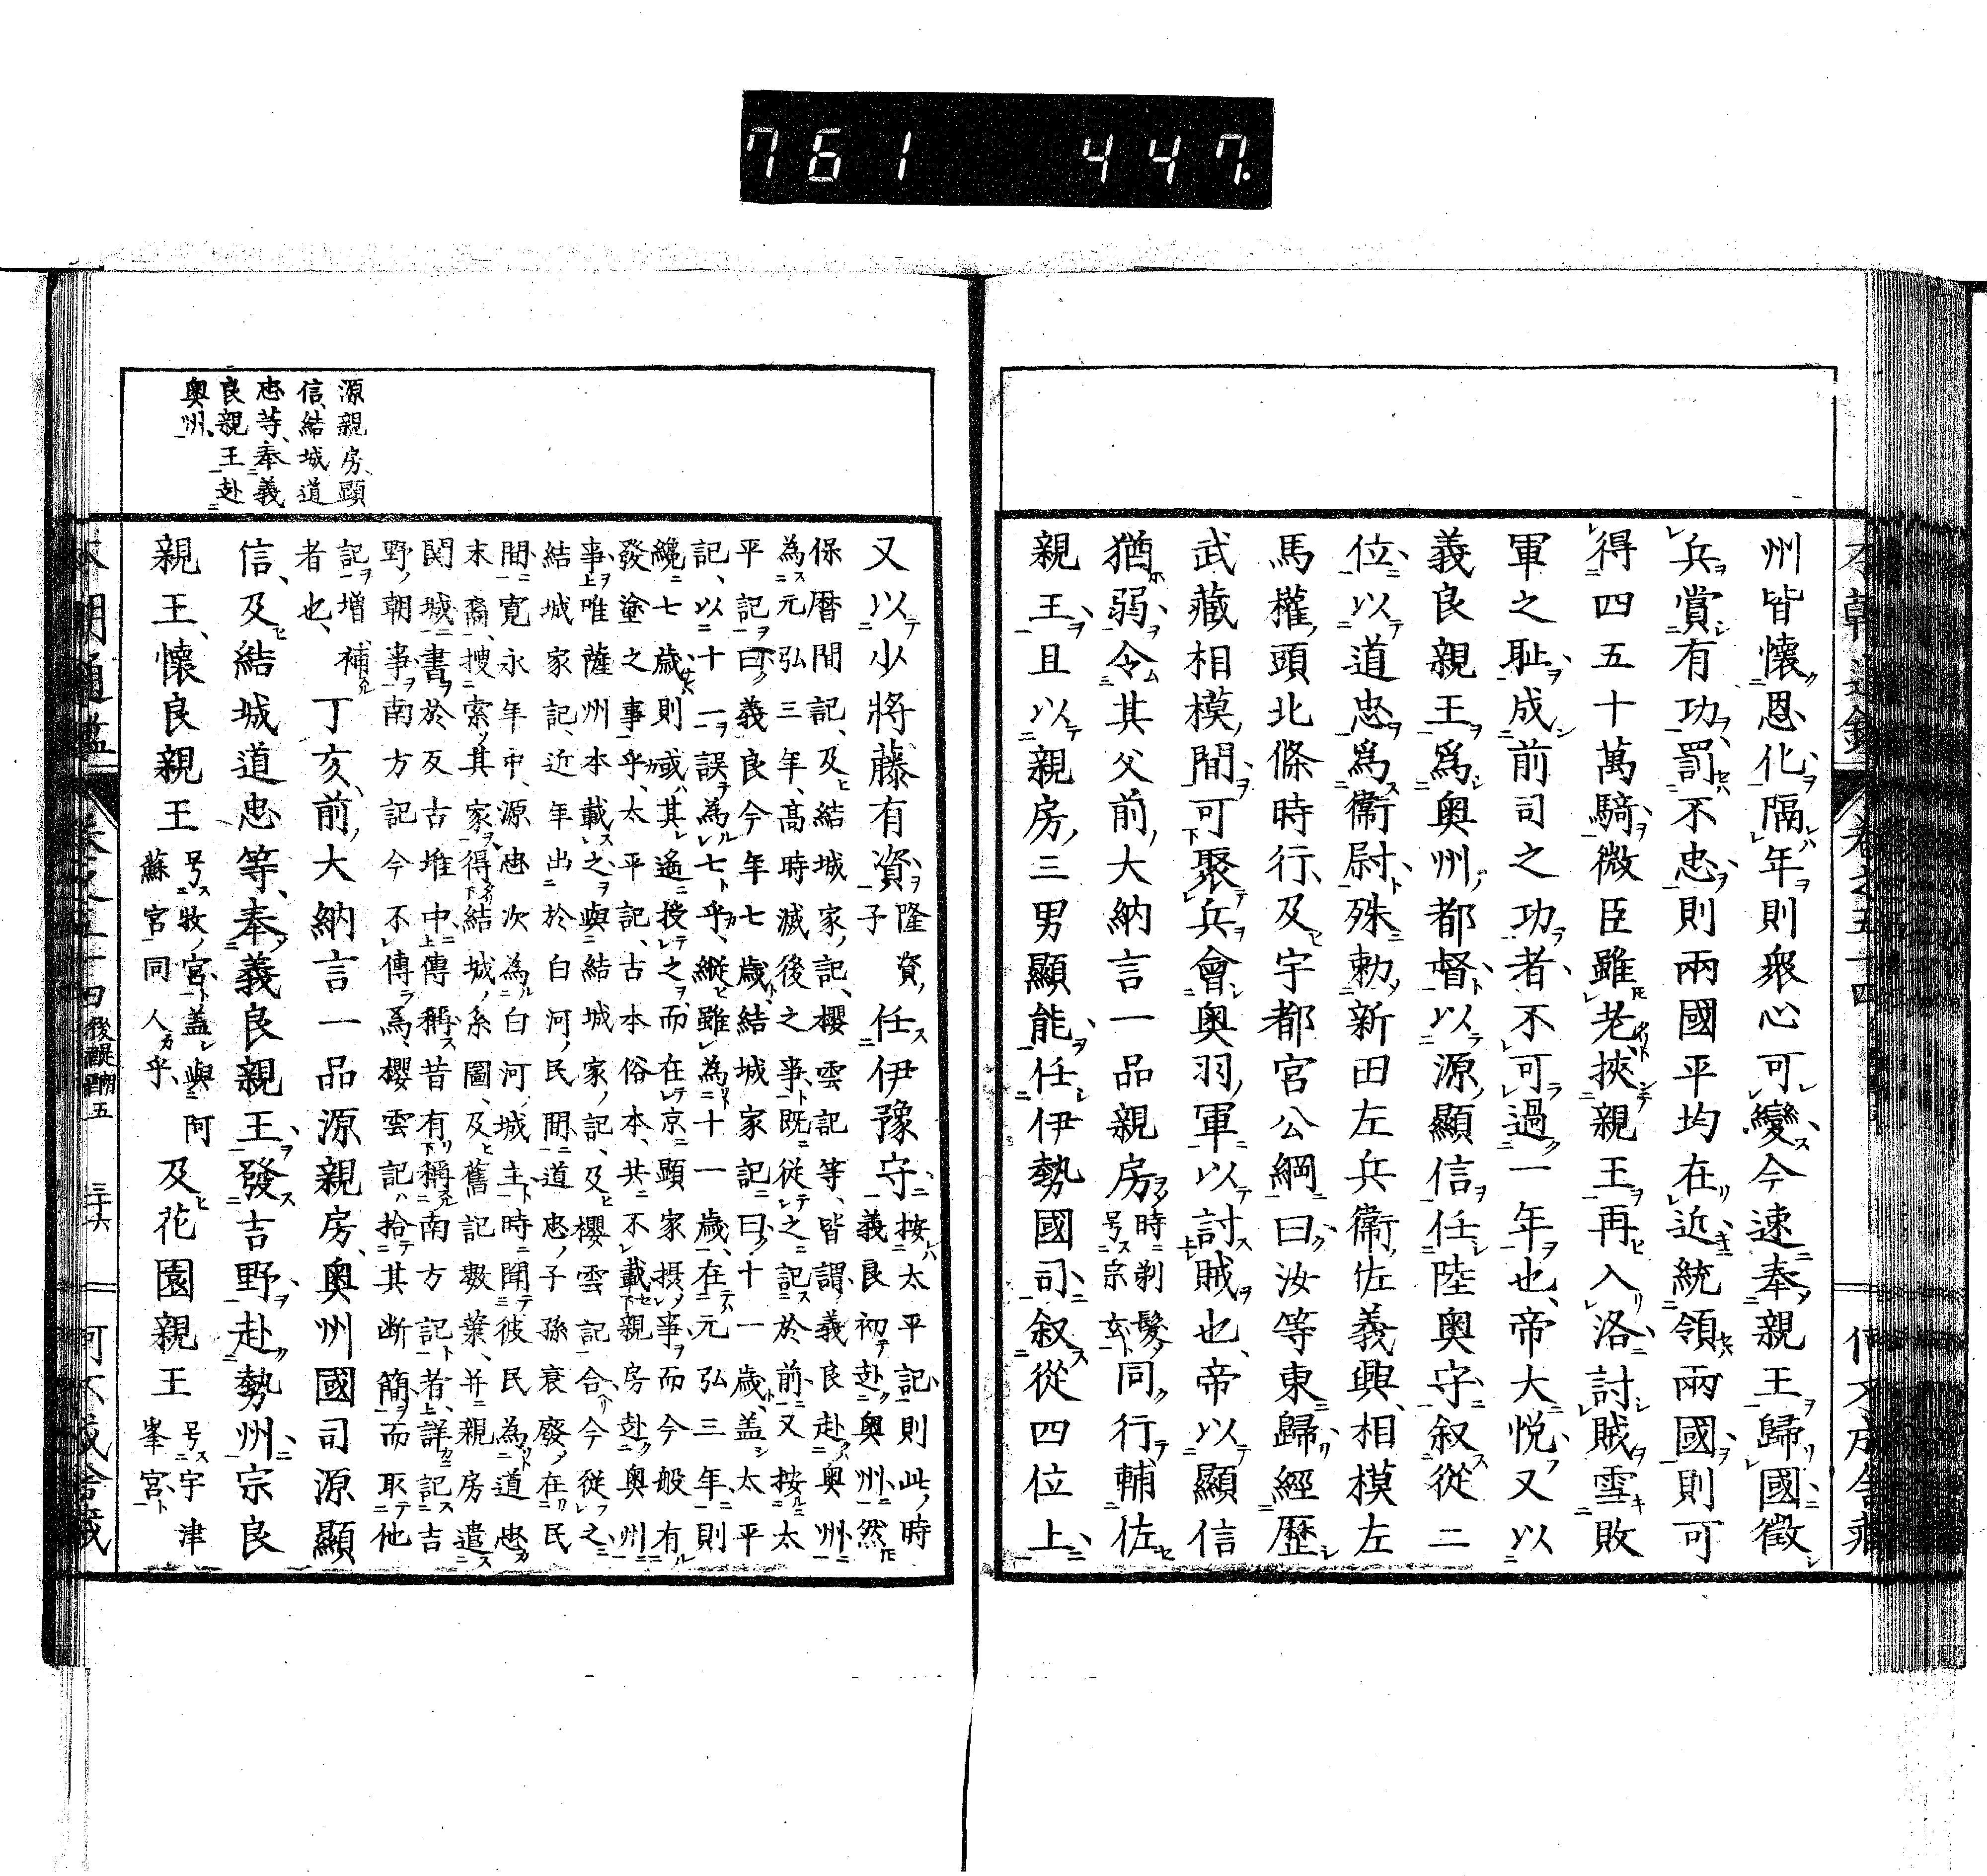 本朝通鑑 卷之五十四
州皆懷恩化隔年則衆心可變今速奉親王歸國徵
兵賞有功罰不忠則兩國平均在近統領兩國則可
得四五十萬騎微臣雖老挾親王再入洛討賊雪敗
軍之耻成前司之功者不可過一年也帝大悅又以
義良親王爲奥州都督以源顯信任陸奥守叙從二
位以道忠爲衞尉殊勅新田左兵衞佐義興相模左
馬權頭北條時行及宇都宮公綱曰汝等東歸經歷
武藏相模間可聚兵會奥羽軍以討賊也帝以顯信
猶弱令其父前大納言一品親房時剃髮号宗玄同行輔佐
親王且以親房三男顯能任伊勢國司叙從四位上
源親房顯
信結城道
忠等奉義
良親王赴
奥州
又以少將藤有資隆資子任伊豫守按太平記則此時義良初赴奥州然
保暦間記及結城家記櫻雲記等皆謂義良赴奥州
為元弘三年高時滅後之事既從之記於前又按太
平記曰義良今年七歳結城家記曰十一歳盖太平
記以十一誤為七乎縱雖為十一歳在元弘三年則
纔七歳則或其遙授之而在京顯家摂事而今般有
發塗之事乎太平記古本俗本共不載親房赴奥州
事唯薩州本載之與結城家記及櫻雲記合今從之
結城家記近年出於白河民間道忠子孫衰廢在民
間寛永年中源忠次為白河城主時聞彼民為道忠
末裔捜索其家得結城系圖及舊記數葉并親房遣
関城書於反古堆中傳稱昔有稱南方記者詳記吉
野朝事南方記今不傳為櫻雲記拾其断簡而取他
記増補者也
丁亥前大納言一品源親房奥州國司源顯
信及結城道忠等奉義良親王發吉野赴勢州宗良
親王懷良親王号牧宮盖與阿蘇宮同人乎及花園親王号宇津峯宮
後醍醐五 三十六